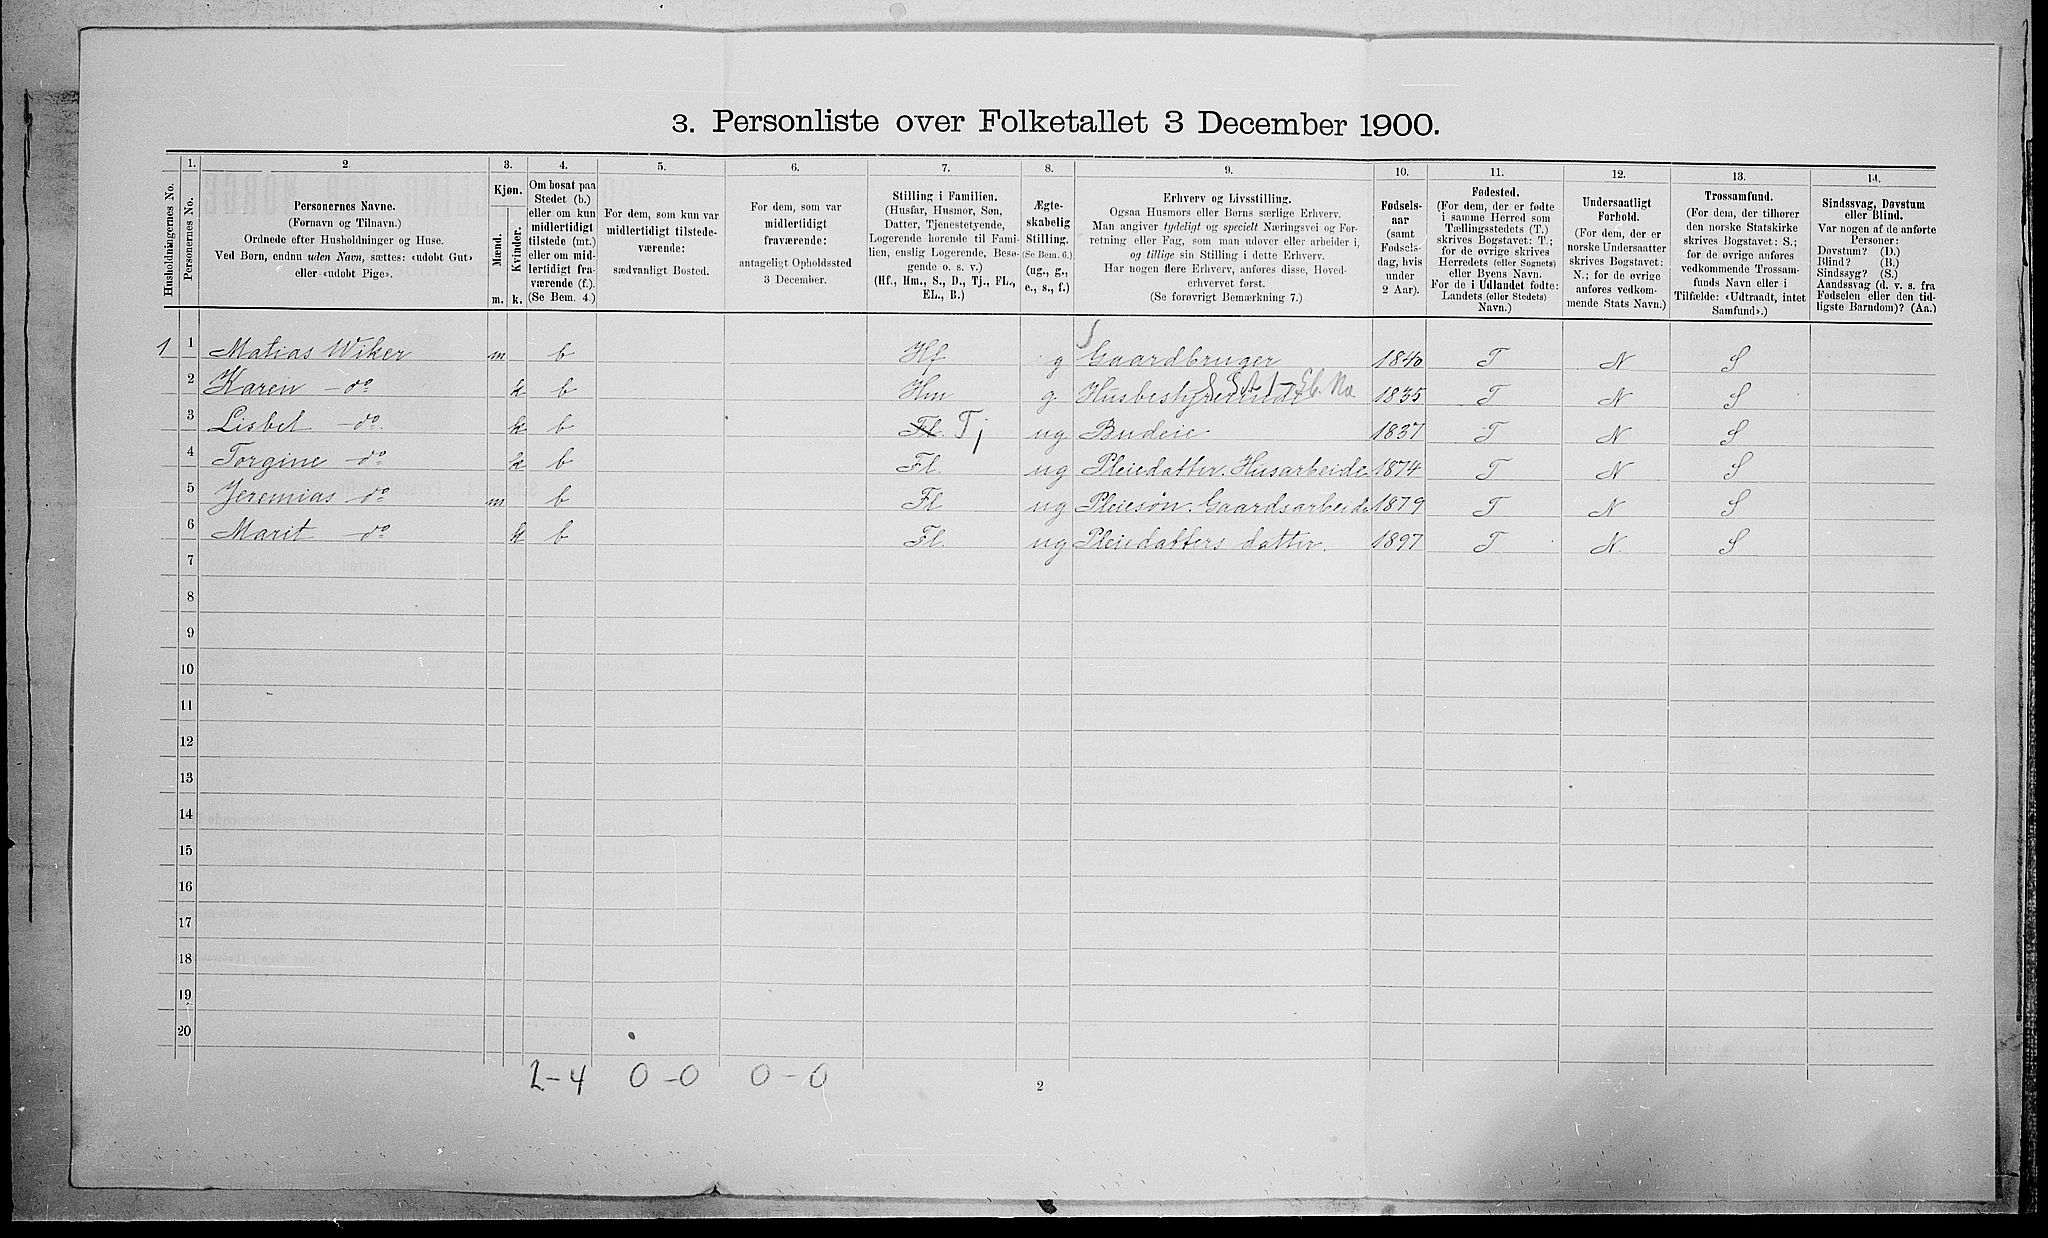 3. Personliste over Folketallet 3 December 1900.
1. 2. 3. 4. 5. 6. 7. 8. 9. 10. 11. 12. 13. 14.
Husholdningernes No.
Personernes No.
Personernes Navne.
(Fornavn og Tilnavn.)
Ordnede efter Husholdninger og Huse.
Ved Børn, endnu uden Navn, sættes: «udøbt Gut»
eller «udøbt Pige».
Kjøn.
Mænd.
Kvinder.
m. k.
Om bosat paa
Stedet (b.)
eller om kun
midlertidigt
tilstede (mt.)
eller om mid-
lertidigt fra-
værende (f.).
(Se Bem. 4.)
For dem, som kun var
midlertidigt tilstede-
værende:
sædvanligt Bosted.
For dem, som var
midlertidigt
fraværende:
antageligt Opholdssted
3 December.
Stilling i Familien.
(Husfar, Husmor, Søn,
Datter, Tjenestetyende,
Logerende hørende til Fami-
lien, enslig Logerende, Besø-
gende o. s. v.)
(Hf., Hm., S., D., Tj., FL.,
EL., B.)
Ægte-
skabelig
Stilling.
(Se Bem. 6.)
(ug., g.,
e., s., f.)
Erhverv og Livsstilling.
Ogsaa Husmors eller Børns særlige Erhverv.
Man angiver tydeligt og specielt Næringsvei og For-
retning eller Fag, som man udøver eller arbeider i,
og tillige sin Stilling i dette Erhverv.
Har nogen flere Erhverv, anføres disse, Hoved-
erhvervet først.
(Se forøvrigt Bemærkning 7.)
Fødsels-
aar
(samt
Fødsels-
dag, hvis
under
2 Aar).
Fødested.
(For dem, der er fødte
i samme Herred som
Tællingsstedets (T.)
skrives Bogstavet: T.;
for de øvrige skrives
Herredets (eller Sognets)
eller Byens Navn.
For de i Udlandet fødte:
Landets (eller Stedets)
Navn.)
Undersaatligt
Forhold.
(For dem, der er
norske Undersaatter
skrives Bogstavet:
N.; for de øvrige
anføres vedkom-
mende Stats Navn.)
Trossamfund.
(For dem, der tilhører
den norske Statskirke
skrives Bogstavet: S.;
for de øvrige anføres
vedkommende Trossam-
funds Navn eller i
Tilfælde: «Udtraadt, intet
Samfund».)
Sindssvag, Døvstum
eller Blind.
Var nogen af de anførte
Personer:
Døvstum? (D.)
Blind? (B.)
Sindssyg? (S.)
Aandssvag (d. v. s. fra
Fødselen eller den tid-
ligste Barndom)? (Aa.)
1 1 Matias Wiker m b Hf g Gaardbruger 1840 T N S
2 Karen do k b Hm g. Husbestyrerinde 1835 T N S
3 Lisbet do. k b Fl. Tj ug Budeie 1837 T N S
4 Torgine do k b Fl. ug Pleiedatter. Husarbeide 1874 T N S
5 Jeremias do m b Fl ug Pleiesøn. Gaardsarbeide 1879 T N S
6 Marit do k b Fl. ug Pleiedatters datter. 1897 T N. S
7
8
9
10
11
12
13
14
15
16
17
18
19
20
2-4 0-0 0-0
2